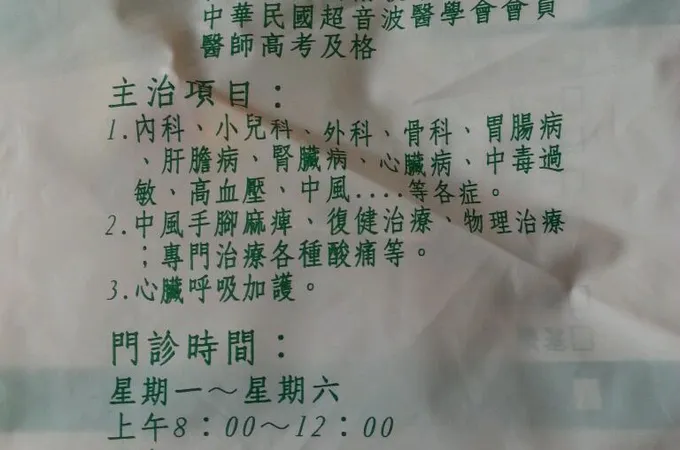 中華民國超音波醫學會會員
醫師高考及格
主治項目：
1.內科、小兒科、外科、骨科、胃腸病
、肝膽病、腎臟病、心臟病、中毒過
敏、高血壓、中風....等各症。
2.中風手腳麻痺、復健治療、物理治療
；專門治療各種酸痛等。
3.心臟呼吸加護。
門診時間：
星期一～星期六
上午8：00～12：00